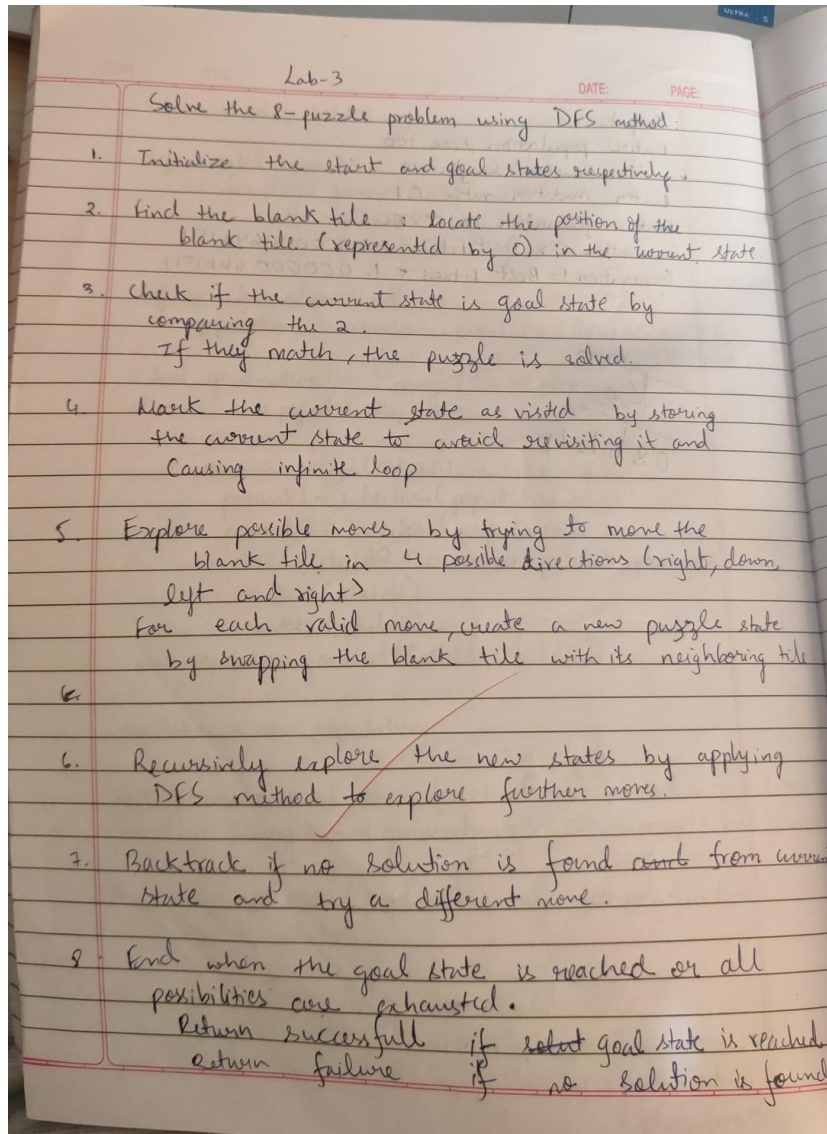 ULTRA 5
Lab-3
DATE: PAGE:
Solve the 8-puzzle problem using DFS method:
1. Initialize the start and goal states respectively.
2. Find the blank tile : locate the position of the
blank tile (represented by 0) in the current state.
3. Check if the current state is goal state by
comparing the 2.
If they match, the puzzle is solved.
4. Mark the current state as visited by storing
the current state to avoid revisiting it and
Causing infinite loop
5. Explore possible moves by trying to move the
blank tile in 4 possible directions (right, down,
left and right)
For each valid move, create a new puzzle state
by swapping the blank tile with its neighboring tile
6.
6. Recursively explore the new states by applying
DFS method to explore further moves.
7. Backtrack if no solution is found from curren
state and try a different move.
8. End when the goal state is reached or all
possibilities are exhausted.
Return successfull if goal state is reached
return failure if no solution is found